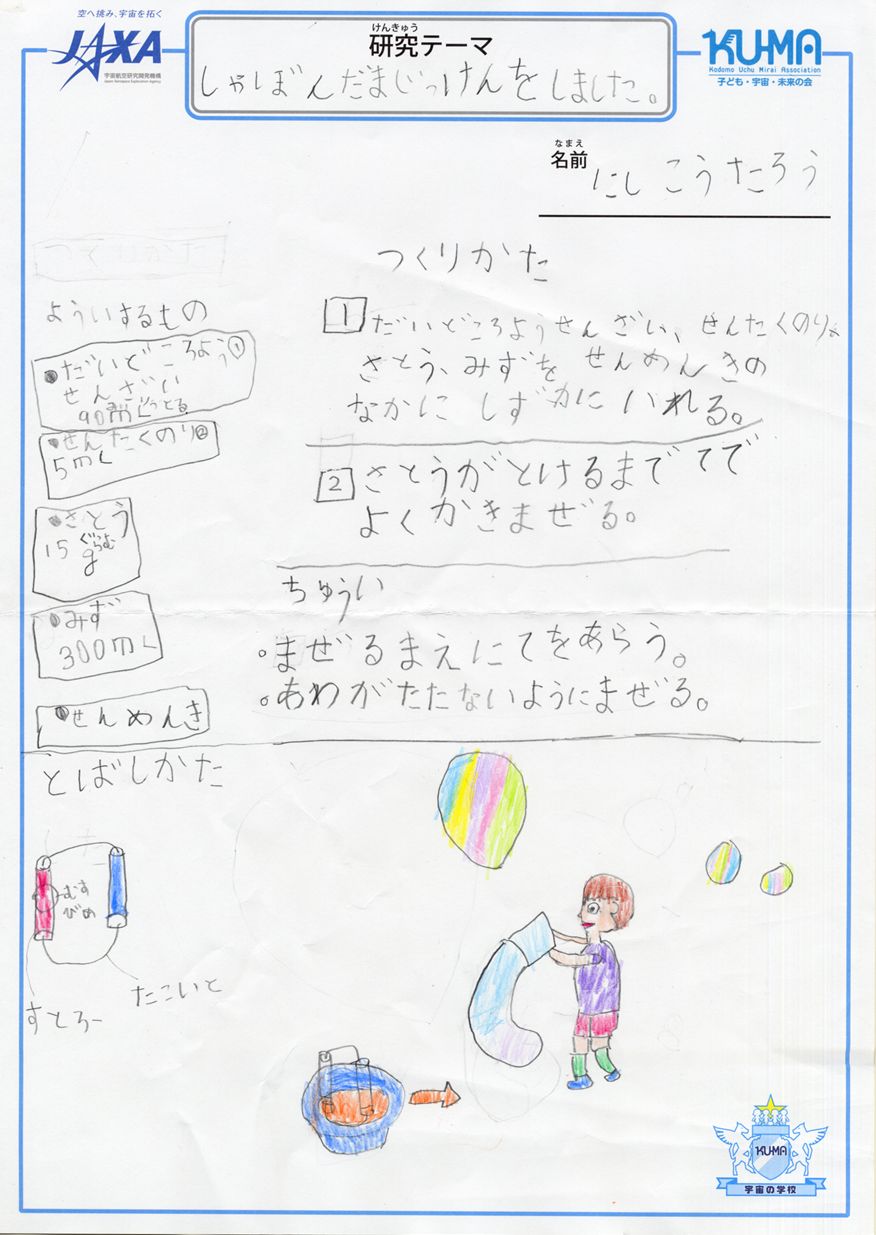 空へ挑み、宇宙を拓く
JAXA
宇宙航空研究開発機構
Japan Aerospace Exploration Agency
けんきゅう
研究テーマ
しゃぼんだまじっけんをしました。
KU-MA
Kodomo Uchu Mirai Association
子ども・宇宙・未来の会
なまえ
名前
にし こうたろう
よういするもの
・だいどころよう①
せんざい
90mL
・せんたくのり②
5mL
・さとう
15 ぐらむ
g
・みず
300mL
・せんめんき
つくりかた
1 だいどころようせんざい、せんたくのり、
さとう、みずを せんめんきの
なかに しずかに いれる。
2 さとうがとけるまで てで
よくかきまぜる。
ちゅうい
・まぜるまえにてをあらう。
・あわがたたないようにまぜる。
とばしかた
むす
びめ
たこいと
すとろー
KU-MA
宇宙の学校